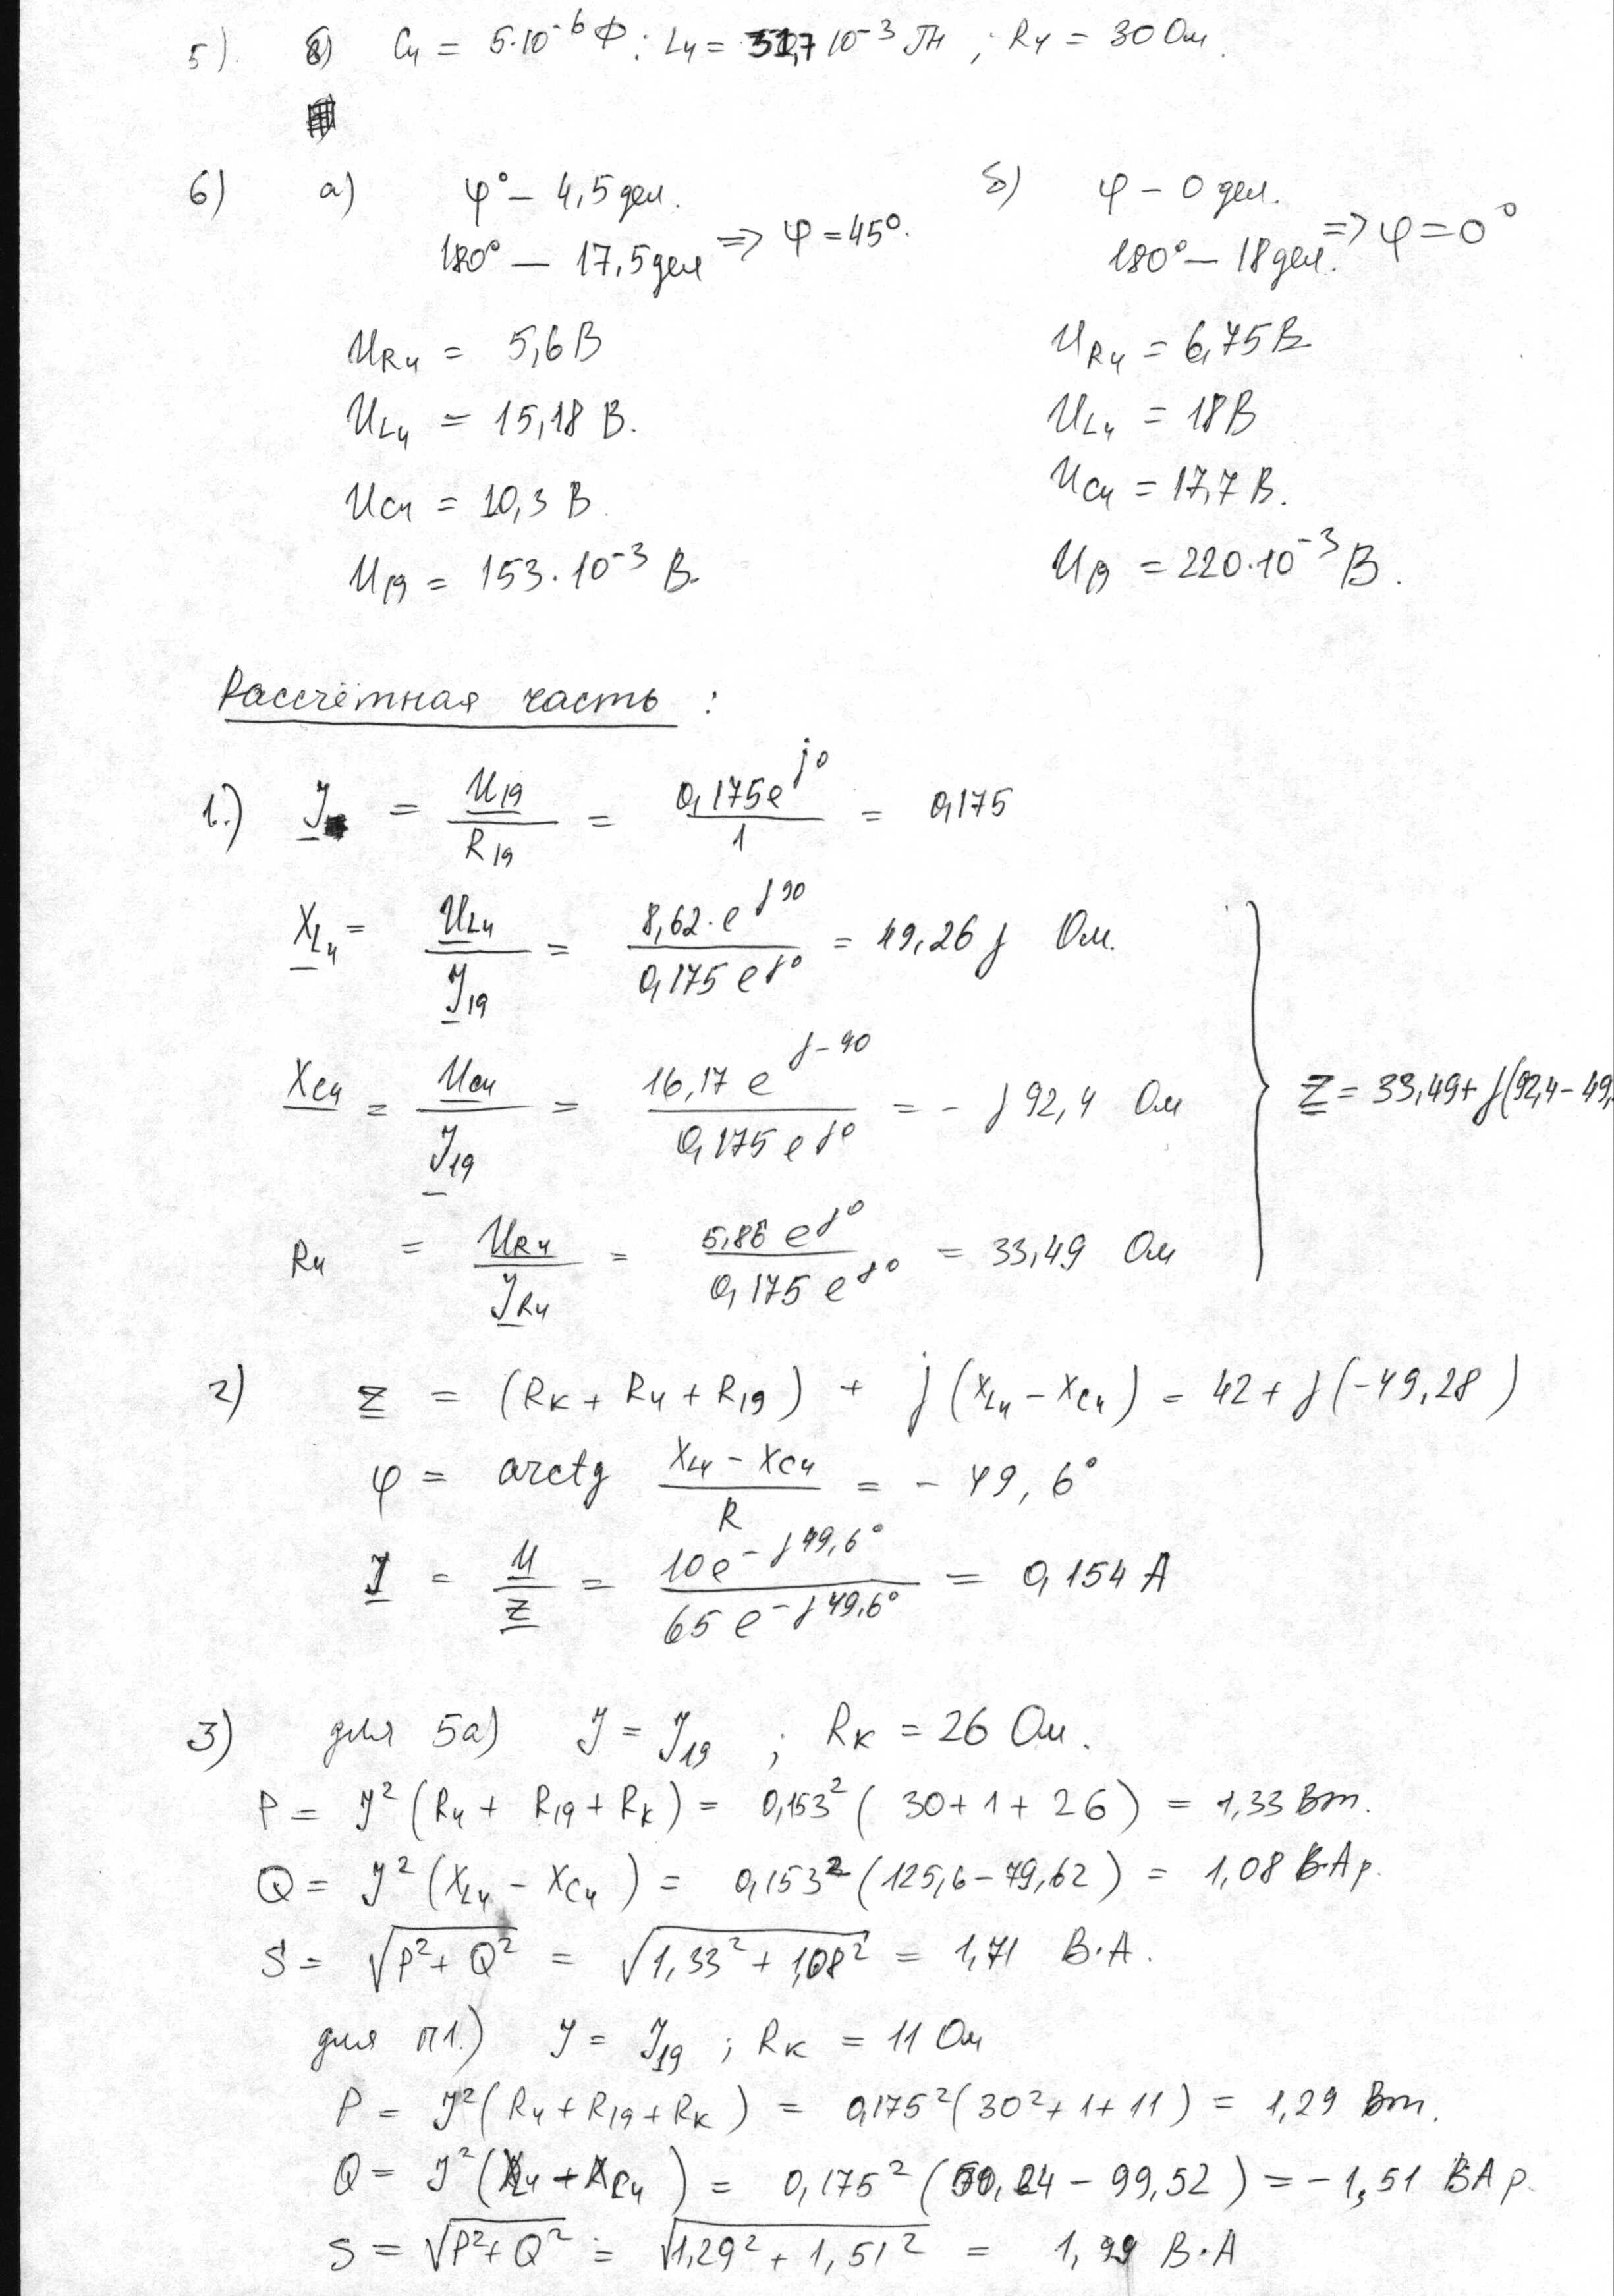 5). б) C₄ = 5·10⁻⁶ Ф ; L₄ = 31,7 10⁻³ Гн ; R₄ = 30 Ом.
6) а) φ° – 4,5 дел. б) φ – 0 дел.
180° – 17,5 дел => φ = 45°. 180° – 18 дел. => φ = 0°
U_R4 = 5,6 В U_R4 = 6,75 В
U_L4 = 15,18 В. U_L4 = 18 В
U_C4 = 10,3 В U_C4 = 17,7 В.
U_19 = 153·10⁻³ В. U_19 = 220·10⁻³ В.
Рассчётная часть :
1.) I = U_19 / R_19 = 0,175e^j0 / 1 = 0,175
X_L4 = U_L4 / I_19 = 8,62·e^j90 / 0,175 e^j0 = 49,26 j Ом.
X_C4 = U_C4 / I_19 = 16,17 e^j-90 / 0,175 e^j0 = - j 92,4 Ом
Z = 33,49 + j(92,4 – 49,
R₄ = U_R4 / I_R4 = 5,86 e^j0 / 0,175 e^j0 = 33,49 Ом
2) Z = (R_K + R₄ + R_19) + j (X_L4 – X_C4) = 42 + j (-49,28)
φ = arctg (X_L4 – X_C4) / R = - 49,6°
I = U / Z = 10e^-j49,6° / 65 e^-j49,6° = 0,154 А
3) для 5а) I = I_19 ; R_K = 26 Ом.
P = I² (R₄ + R_19 + R_K) = 0,153² ( 30 + 1 + 26 ) = 1,33 Вт.
Q = I² (X_L4 – X_C4 ) = 0,153² (125,6 – 79,62 ) = 1,08 В·Ар.
S = √(P² + Q²) = √(1,33² + 1,08²) = 1,71 В·А.
для п1.) I = I_19 ; R_K = 11 Ом
P = I² (R₄ + R_19 + R_K ) = 0,175² (30² + 1 + 11 ) = 1,29 Вт.
Q = I² ( ) = 0,175² ( – 99,52 ) = – 1,51 ВАр.
S = √(P² + Q²) = √(1,29² + 1,51²) = 1,99 В·А